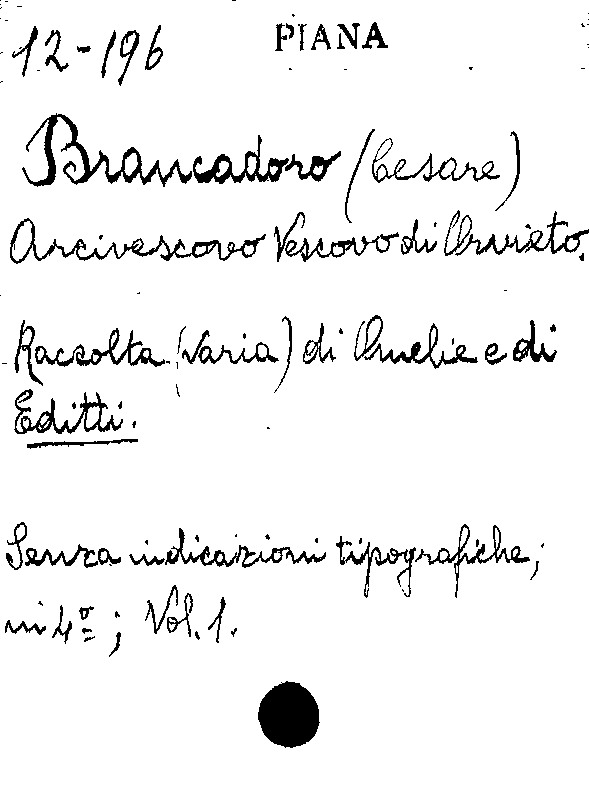 12-196 PIANA
Brancadoro (Cesare)
Arcivescovo Vescovo di Orvieto.
Raccolta (varia) di Omelie e di
Editti.
Senza indicazioni tipografiche;
in 4º; Vol. 1.